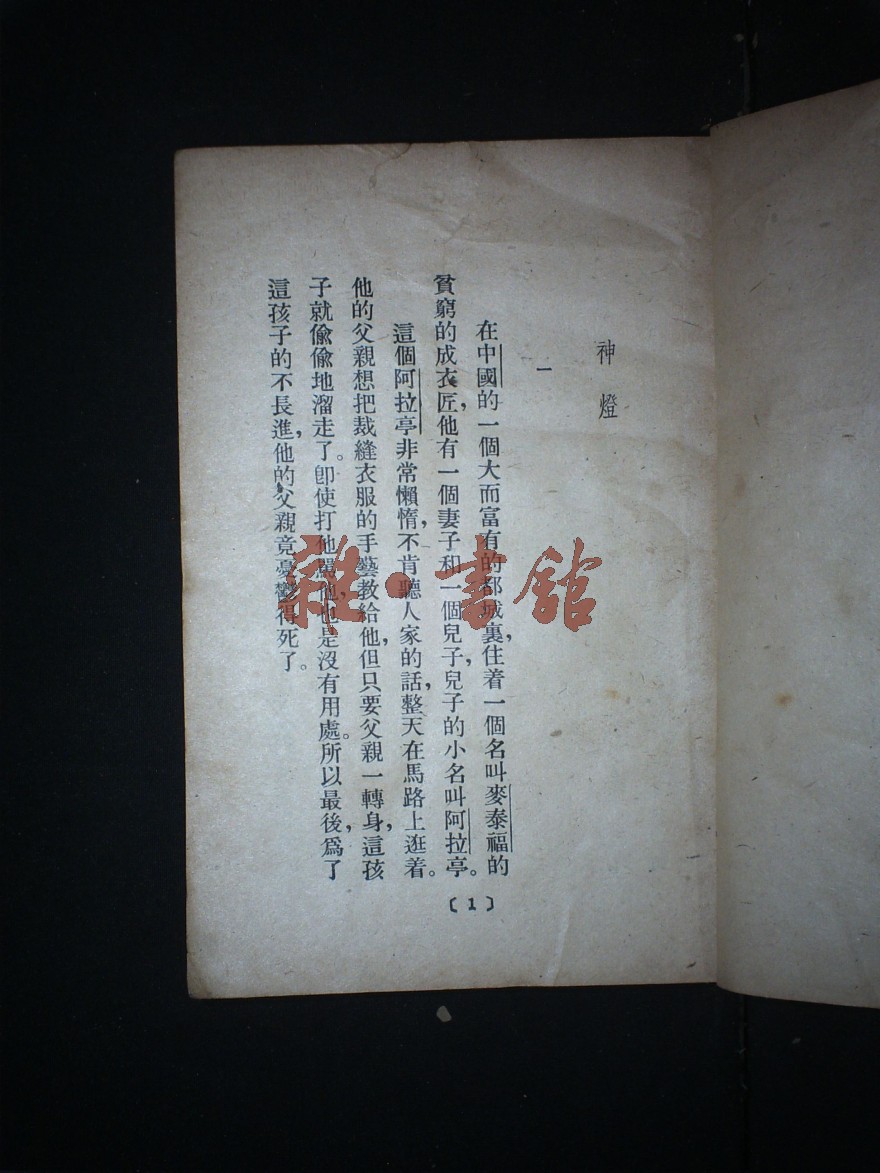 神燈
一
在中國的一個大而富有的都城裏,住着一個名叫麥泰福的
貧窮的成衣匠,他有一個妻子和一個兒子,兒子的小名叫阿拉亭。
這個阿拉亭非常懶惰,不肯聽人家的話,整天在馬路上逛着。
他的父親想把裁縫衣服的手藝教給他,但只要父親一轉身,這孩
子就偸偸地溜走了。卽使打他罵他,也是沒有用處。所以最後,爲了
這孩子的不長進,他的父親竟憂鬱得死了。
〔1〕
雜·書館